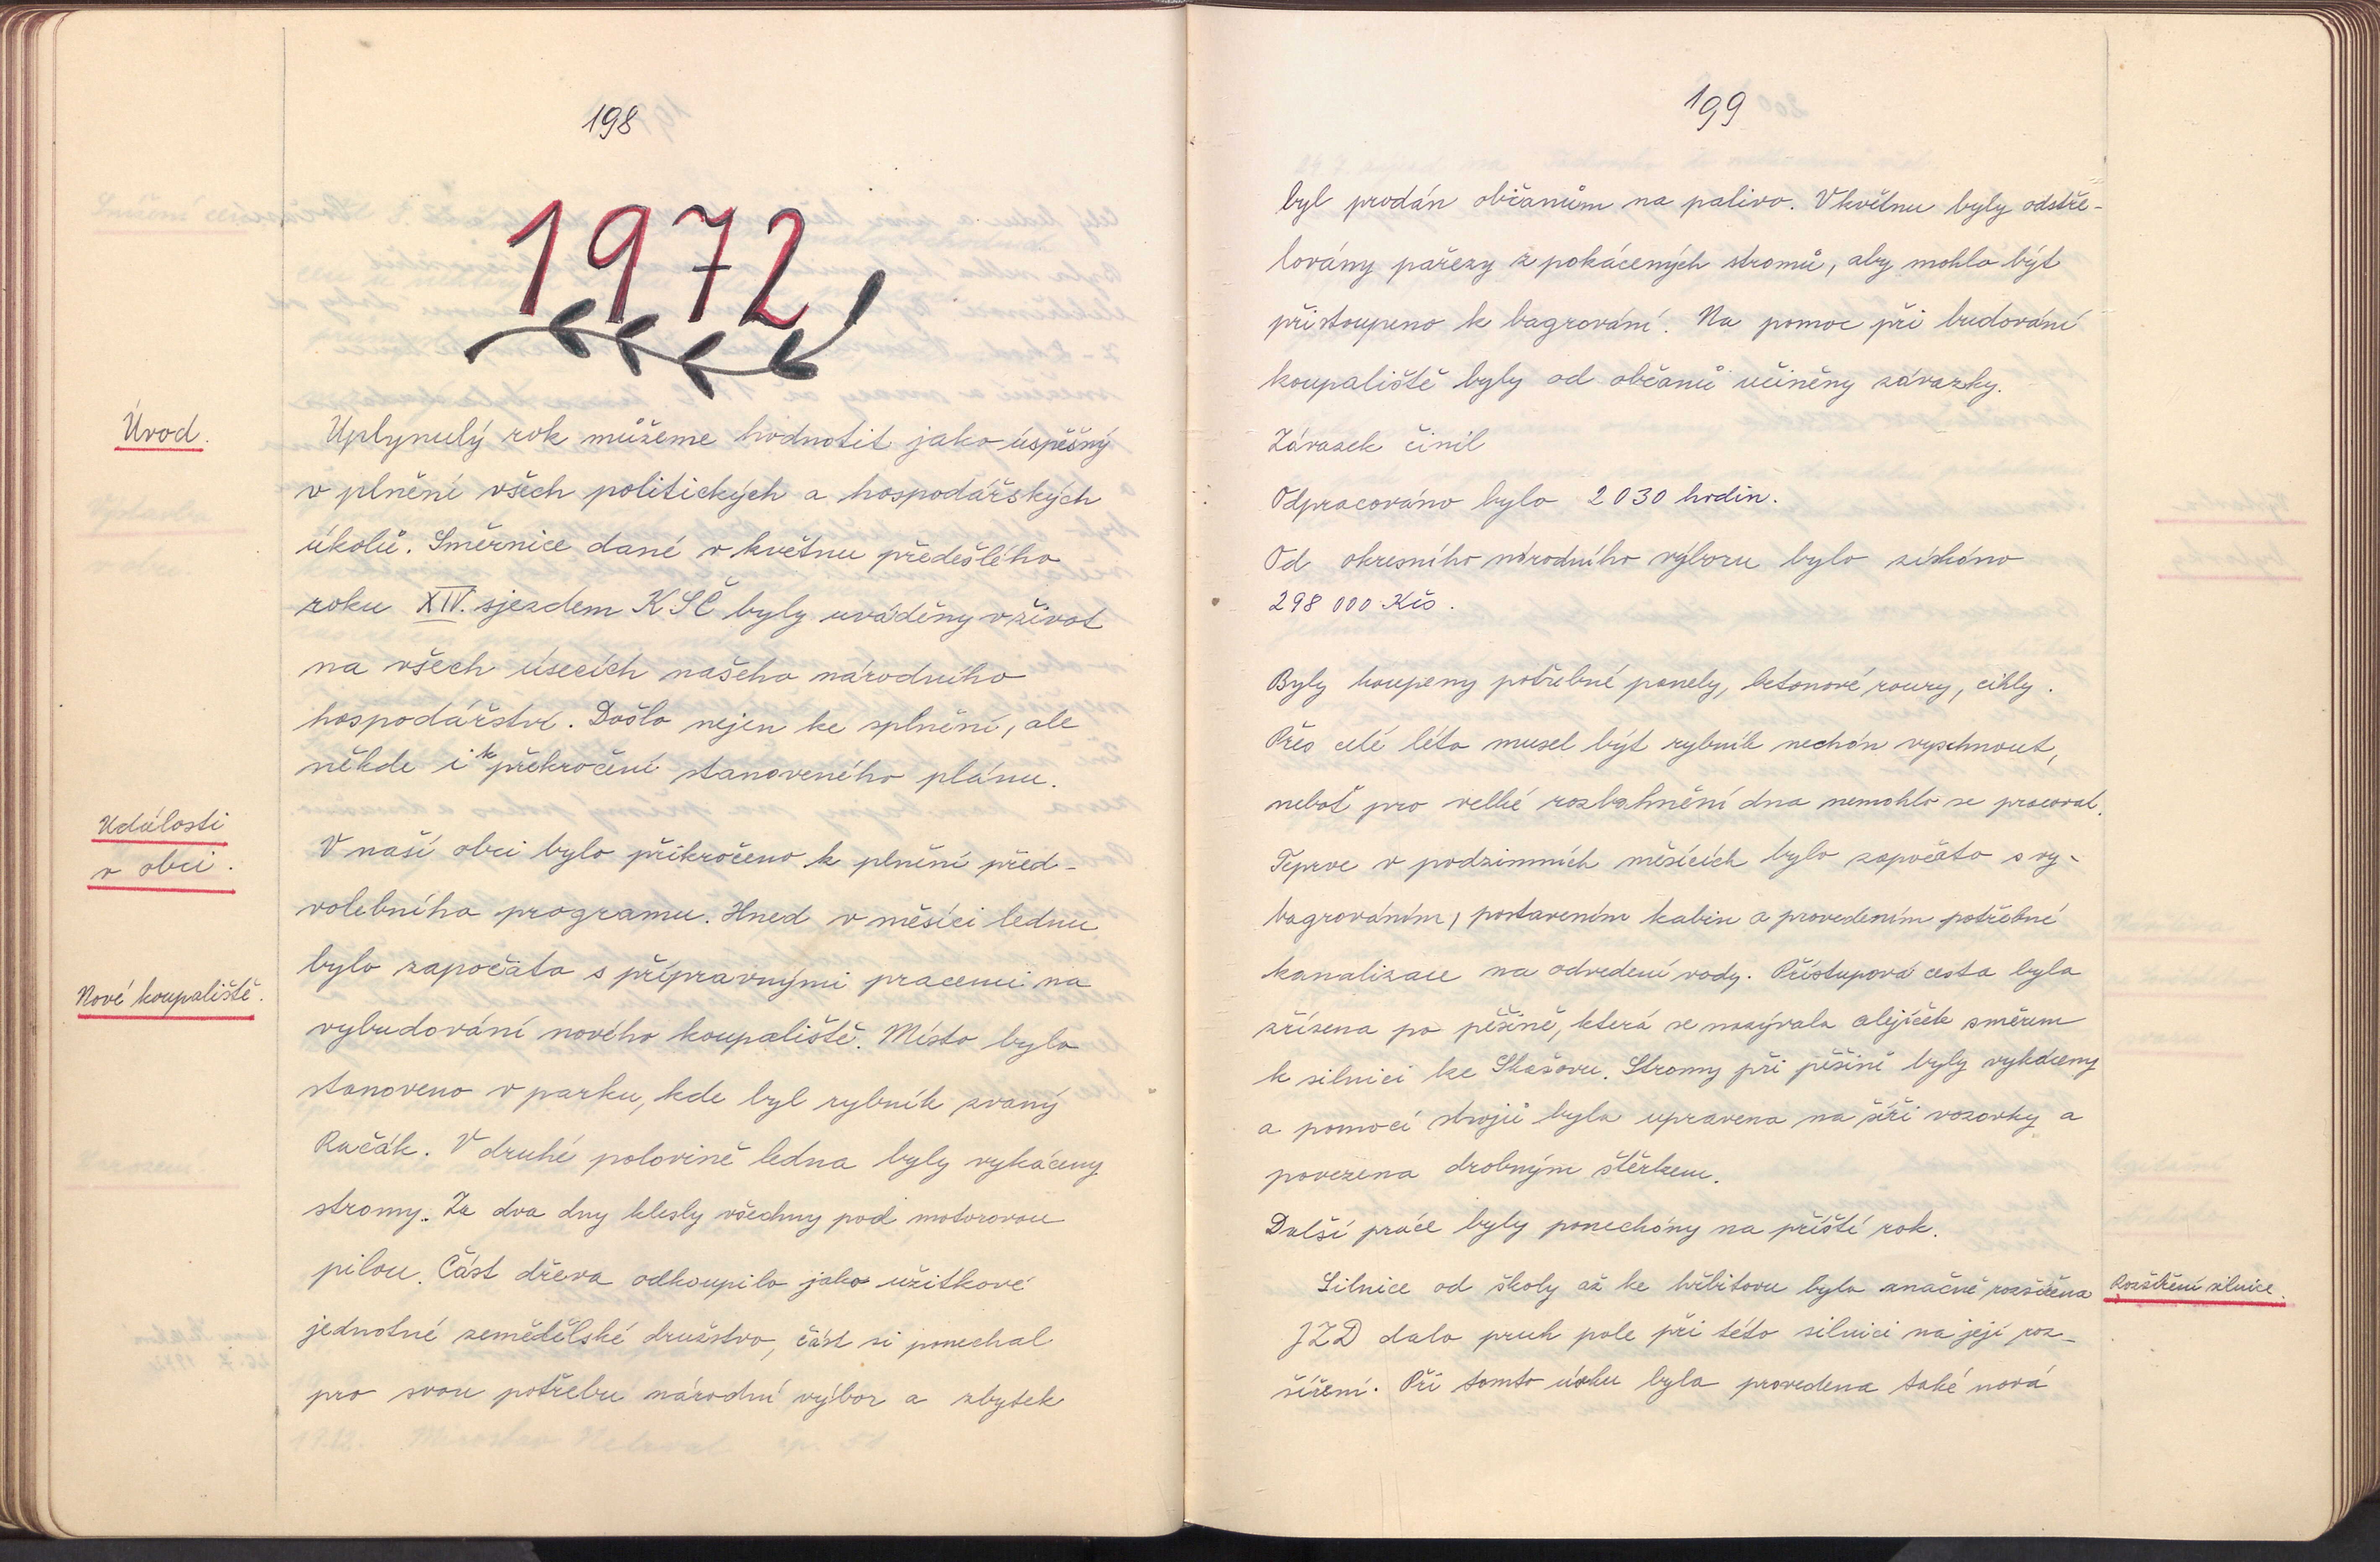 198
1972
Úvod.
Uplynulý rok můžeme hodnotit jako úspěšný
v plnění všech politických a hospodářských
úkolů. Směrnice dané v květnu předešlého
roku XIV. sjezdem KSČ byly uváděny v život
na všech úsecích našeho národního
hospodářství. Došlo nejen ke splnění, ale
někde i k překročení stanoveného plánu.
Události
v obci.
V naší obci bylo přikročeno k plnění před-
volebního programu. Hned v měsíci lednu
bylo započato s přípravnými pracemi na
Nové koupaliště.
vybudování nového koupaliště. Místo bylo
stanoveno v parku, kde byl rybník zvaný
Račák. V druhé polovině ledna byly vykáceny
stromy. Za dva dny klesly všechny pod motorovou
pilou. Část dřeva odkoupilo jako užitkové
jednotné zemědělské družstvo, část si ponechal
pro svou potřebu národní výbor a zbytek
199
byl prodán občanům na palivo. V květnu byly odstře-
lovány pařezy z pokácených stromů, aby mohlo být
přistoupeno k bagrování. Na pomoc při budování
koupaliště byly od občanů učiněny závazky.
Závazek činil
Odpracováno bylo 2030 hodin.
Od okresního národního výboru bylo získáno
298 000 Kčs.
Byly koupeny potřebné panely, betonové roury, cihly.
Přes celé léto musel být rybník nechán vyschnout,
neboť pro velké rozbahnění dna nemohlo se pracovat.
Teprve v podzimních měsících bylo započato s vy-
bagrováním, postavením kabin a provedením potřebné
kanalizace na odvedení vody. Přístupová cesta byla
zřízena po pěšině, která se nazývala alejíček směrem
k silnici ke Skašovu. Stromy při pěšině byly vykáceny
a pomocí strojů byla upravena na šíři vozovky a
povezena drobným štěrkem.
Další práce byly ponechány na příští rok.
Silnice od školy až ke hřbitovu byla značně rozšířena
Rozšíření silnice.
JZD dalo pruh pole při této silnici na její roz-
šíření. Při tomto úseku byla provedena také nová